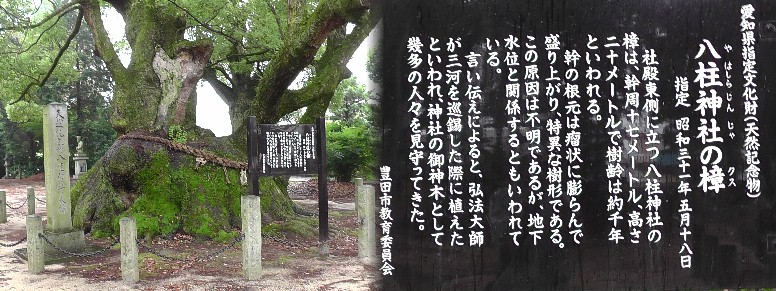 愛知県指定文化財(天然記念物)
八柱神社の樟
やはしらじんじゃ
クス
指定 昭和三十一年五月十八日
社殿東側に立つ八柱神社の
樟は、幹周十七メートル、高さ
二十メートルで樹齢は約千年
といわれる。
幹の根元は瘤状に膨らんで
盛り上がり、特異な樹形である。
この原因は不明であるが、地下
水位と関係するともいわれて
いる。
言い伝えによると、弘法大師
が三河を巡錫した際に植えた
といわれ、神社の御神木として
幾多の人々を見守ってきた。
豊田市教育委員会